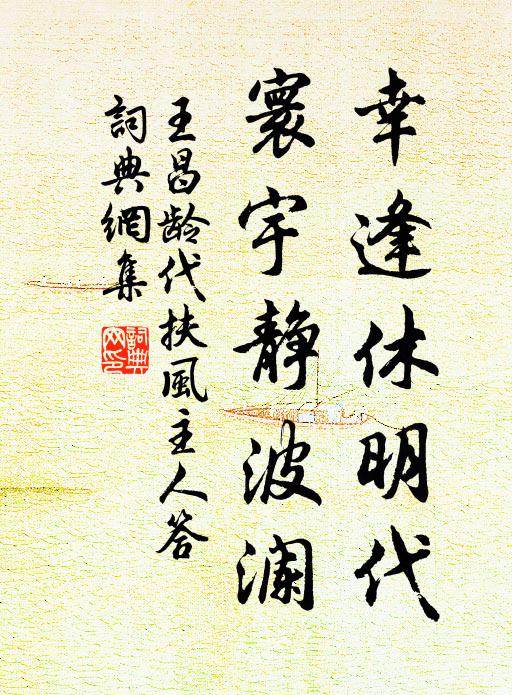 幸逢休明代
寰宇静波澜
王昌龄代扶風主人答
詞典網集
詞典
网印